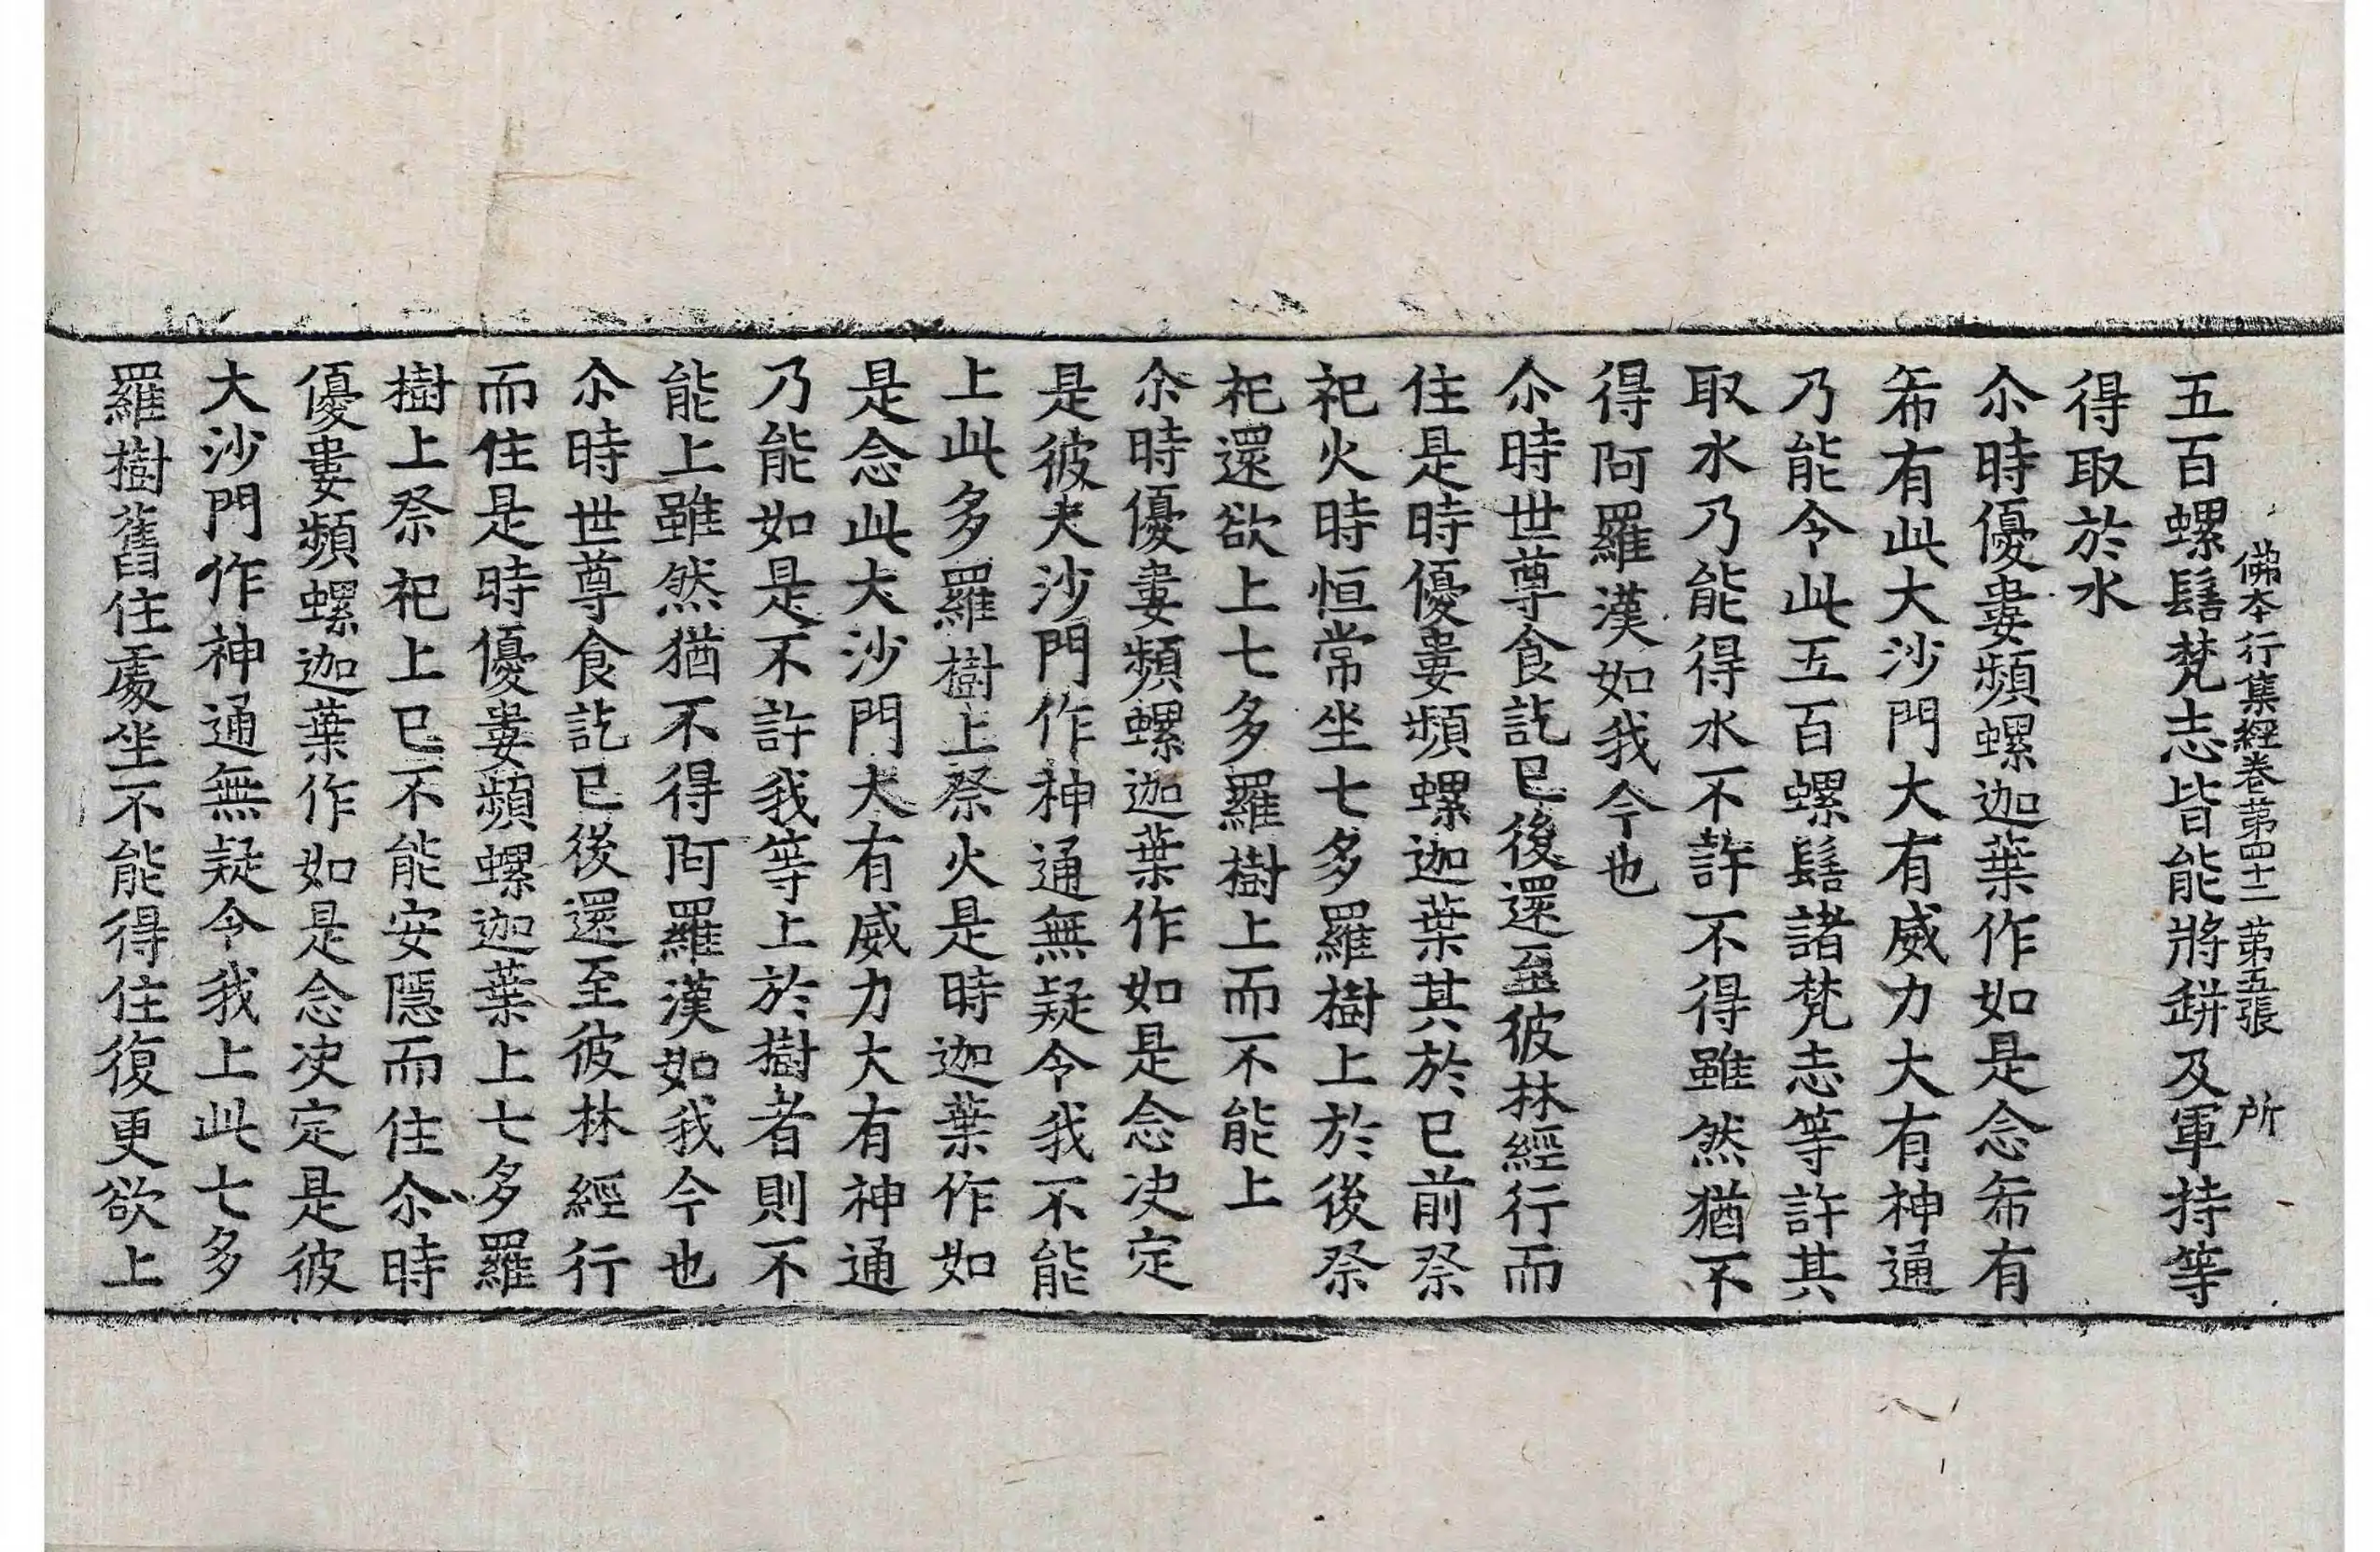 佛本行集經卷第四十二 第五張 所
五百螺髻梵志皆能將缾及軍持等
得取於水
尒時優婁頻螺迦葉作如是念希有
希有此大沙門大有威力大有神通
乃能令此五百螺髻諸梵志等許其
取水乃能得水不許不得雖然猶不
得阿羅漢如我今也
尒時世尊食訖已後還至彼林經行而
住是時優婁頻螺迦葉其於已前祭
祀火時恒常坐七多羅樹上於後祭
祀還欲上七多羅樹上而不能上
尒時優婁頻螺迦葉作如是念決定
是彼大沙門作神通無疑令我不能
上此多羅樹上祭火是時迦葉作如
是念此大沙門大有威力大有神通
乃能如是不許我等上於樹者則不
能上雖然猶不得阿羅漢如我今也
尒時世尊食訖已後還至彼林經行
而住是時優婁頻螺迦葉上七多羅
樹上祭祀上已不能安隱而住尒時
優婁頻螺迦葉作如是念決定是彼
大沙門作神通無疑令我上此七多
羅樹舊住處坐不能得住復更欲上